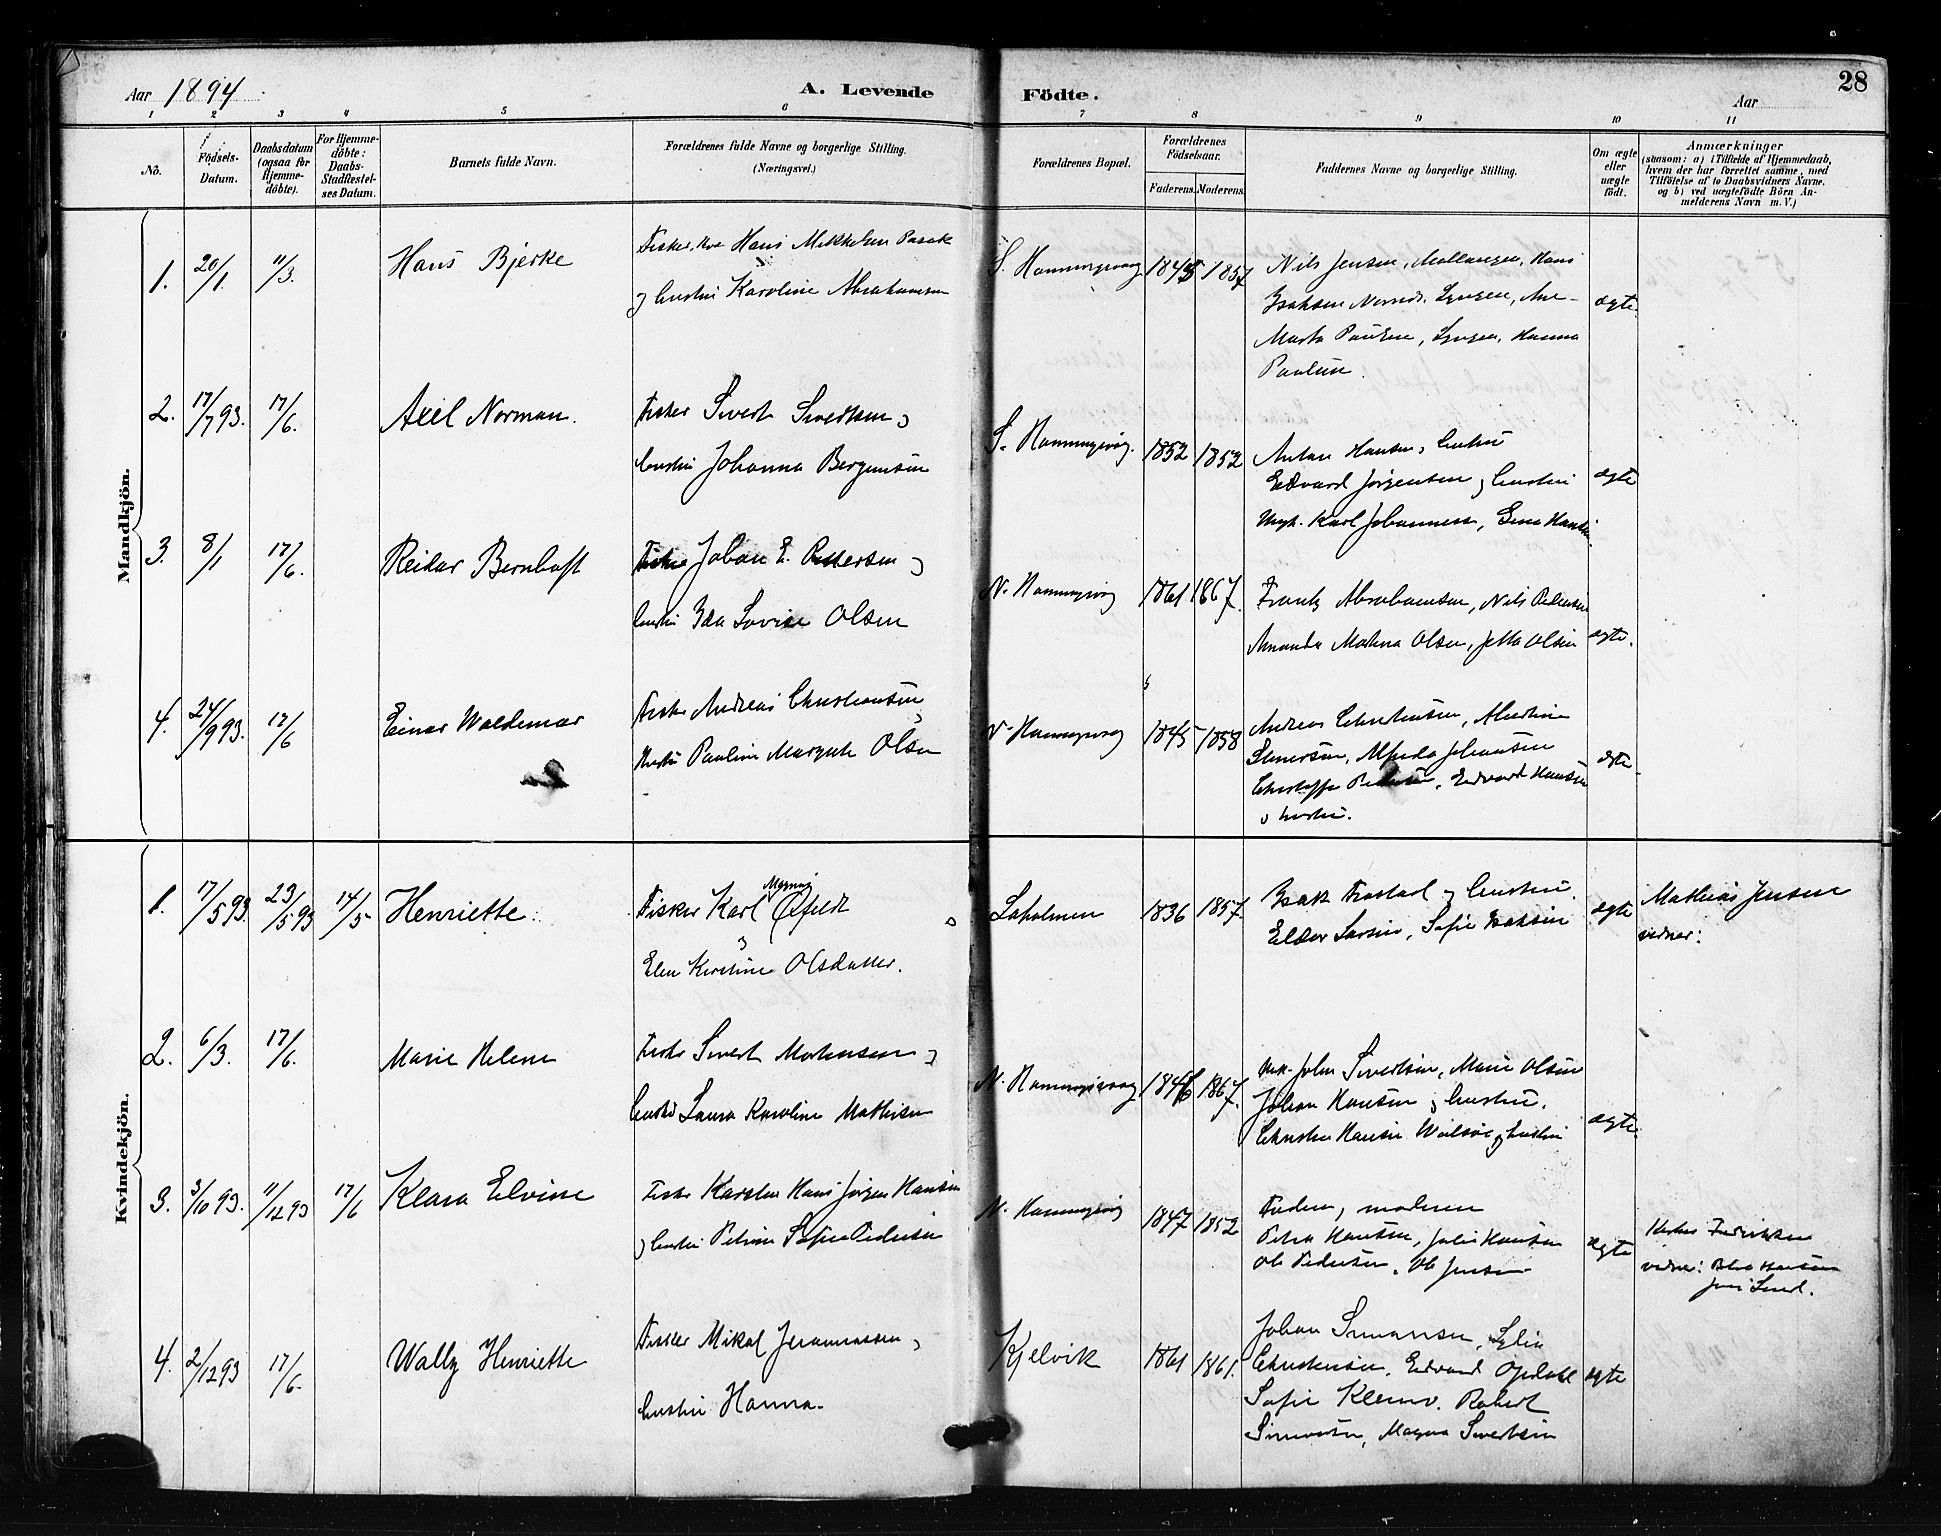 28
Aar 1894
A. Levende Födte.
Aar
1 2 3 4 5 6 7 8 9 10 11
No.
Födsels-Datum.
Daabsdatum (ogsaa for Hjemme-döbte).
For Hjemme-döbte: Daabs-Stadfæstel-ses Datum.
Barnets fulde Navn.
Forældrenes fulde Navne og borgerlige Stilling. (Næringsvei.)
Forældrenes Bopæl.
Forældrenes Födselsaar.
Faderens. Moderens.
Faddernes Navne og borgerlige Stilling.
Om ægte eller uægte födt.
Anmærkninger
(saasom: a) i Tilfælde af Hjemmedaab,
hvem der har forrettet samme, med
Tilföielse af to Daabsvidners Navne.
og b) ved uægtefödte Börn An-
melderens Navn m. V.)
Mandkjön.
1. 20/1 11/3. Hans Bjerke
Hans Mikkelsen
Karoline Abrahamsen
S. Honningsvaag 1845 1857
Nils Jensen, Mallangen, Hans
Isaksen Lyngen,
Marta Lyngen, Hanna
Paulsen.
ægte.
2. 17/7 93. 17/6. Axel Norman.
Fisker Sivert Sivertsen og
Hustru Johanna Bergensen
S. Honningsvaag. 1852 1852
Anton Hansen, Hustru
Edvard Jörgensen og Hustru
Ungk. Karl Johannesen,
ægte
3. 8/1 17/6. Reidar Bernhoft
Fisker Johan E. Pettersen og
Hustru Ida Lovise Olsen
N. Honningsvaag 1861 1867.
Frantz Abrahamsen, Nils Pedersen
Amanda Olsen, Olsen
ægte.
4. 24/9 93. 17/6 Einar Waldemar
Fisker Andreas Christiansen
Hustru Pauline Margrete Olsen
N. Honningsvaag 1845 1858
Andreas Christiansen, Albertine
Johansen
Pedersen, Edvard Hansen
og hustru.
ægte.
Kvindekjön.
1. 17/5 93. 23/5 93 14/5 Henriette.
Fisker Karl Magnus
og
Elen Kirstine Olsdatter.
1836 1857.
Isak og Hustru.
Larsen, Sofie Isaksen
ægte
Mathias Jensen
vidner:
2. 6/3. 17/6. Marie Helene
Fisker Sivert Mortensen og
Hustru Laura Karoline Mathisen
N. Honningsvaag 1846 1867.
John Sivertsen, Marie Olsen
Johan Hansen og hustru.
Hansen og hustru
ægte.
3. 3/10 93. 11/12 93 17/6 Klara Elvine
Fisker Karsten Hans Jörgen Hansen
og Hustru Petrine Sofie Pedersen
N. Honningsvaag 1847 1852
Faderen, moderen
Petra Hansen, Julie Hansen
Ole Pedersen, Ole Jensen
ægte
Fredriksen
vidner: Hansen
Lund.
4. 2/12 93 17/6. Wally Henriette
Fisker Mikal Jeremiassen og
Hustru Hanna.
Kjelvik 1861 1861.
Johan Simonsen,
Christensen, Edvard Opdahl
Sofie Klemo. Robert
Simonsen, Magna Sivertsen
ægte